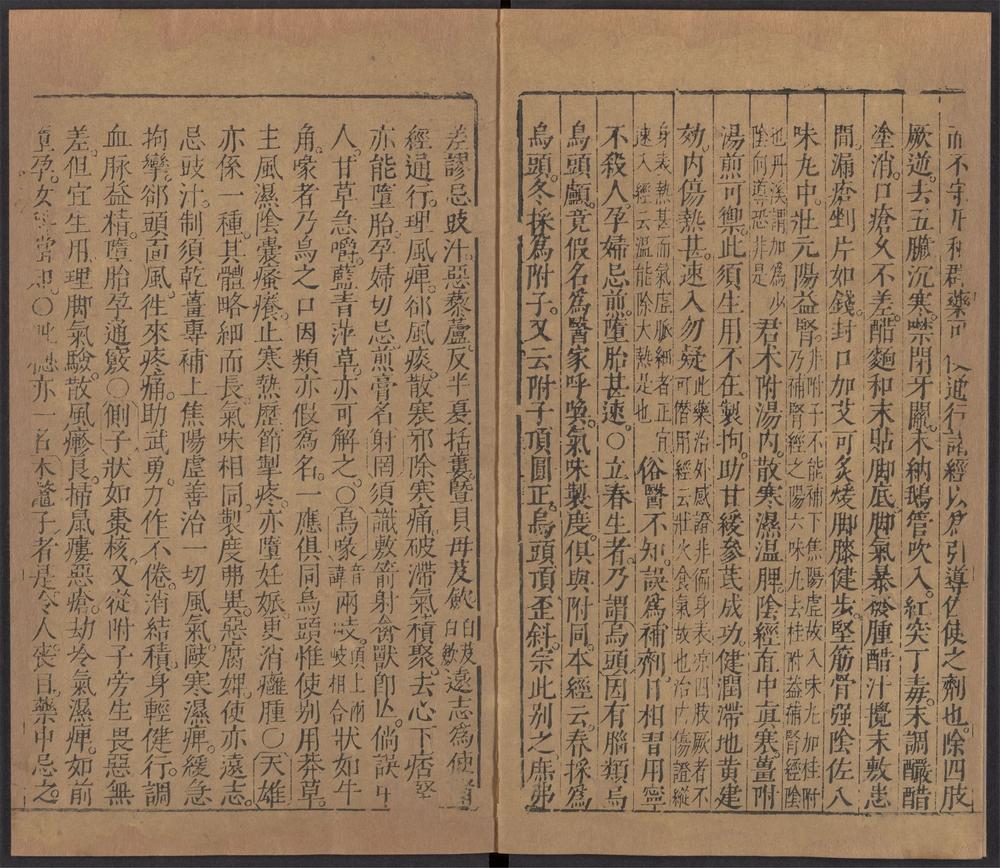 而不守凡和群藥可使通行諸經以為引導佐使之劑也除四肢
厥逆去五臟沉寒噤閉牙關末納鵝管吹入紅突丁毒末調釅醋
塗消口瘡久不差醋麵和末貼脚底脚氣暴發腫醋汁攪末敷患
間漏瘡剉片如錢封口加艾可炙煖脚膝健步堅筋骨强陰佐八
味丸中壯元陽益腎非附子不能補下焦陽虛故八味丸加桂附乃補腎經之陽六味丸去桂附益補腎經陰
也丹溪謂加為少陰向導恐非是君术附湯內散寒濕溫脾陰經直中真寒薑附
湯煎可禦此須生用不在製拘助甘緩參芪成功健潤滯地黃建
効內傷熱甚速入勿疑此藥治外感證非徧身表凉四肢厥者不可僭用經云壯火食氣故也治內傷證縱
身表熱甚而氣虛脈細者正宜速入經云溫能除大熱是也俗醫不知誤為補劑日相習用寧
不殺人孕婦忌煎墮胎甚速○立春生者乃謂烏頭因有腦類烏
鳥頭顱竟假名為醫家呼喚氣味製度俱與附同本經云春採為
烏頭冬採為附子又云附子頂圓正烏頭頂歪斜宗此别之庶弗
差謬忌豉汁惡藜蘆反半夏括蔞曁貝母芨歛白芨白歛遠志為使
經通行理風痺郤風痰散寒邪除寒痛破滯氣積聚去心下痞堅
亦能墮胎孕婦切忌煎膏名射罔須識敷箭射禽獸即亾倘誤中
人甘草急嚼藍青萍草亦可解之○烏喙音諱兩岐頂上兩岐相合狀如牛
角喙者乃烏之口因類亦假為名一應俱同烏頭惟使别用莽草
主風濕陰囊瘙癢止寒熱歷節掣疼亦墮妊娠更消癰腫○天雄
亦係一種其體略細而長氣味相同製度弗異惡腐婢使亦遠志
忌豉汁制須乾薑專補上焦陽虛善治一切風氣敺寒濕痺緩急
拘攣郤頭面風徃來疼痛助武勇力作不倦消結積身輕健行調
血脉益精墮胎孕通竅○側子狀如棗核又從附子旁生畏惡無
差但宜生用理脚氣驗散風㾦良掃鼠瘻惡瘡劫冷氣濕痺如前
墮孕女 ○此 亦一名木鼈子者是令人喪目藥中忌之